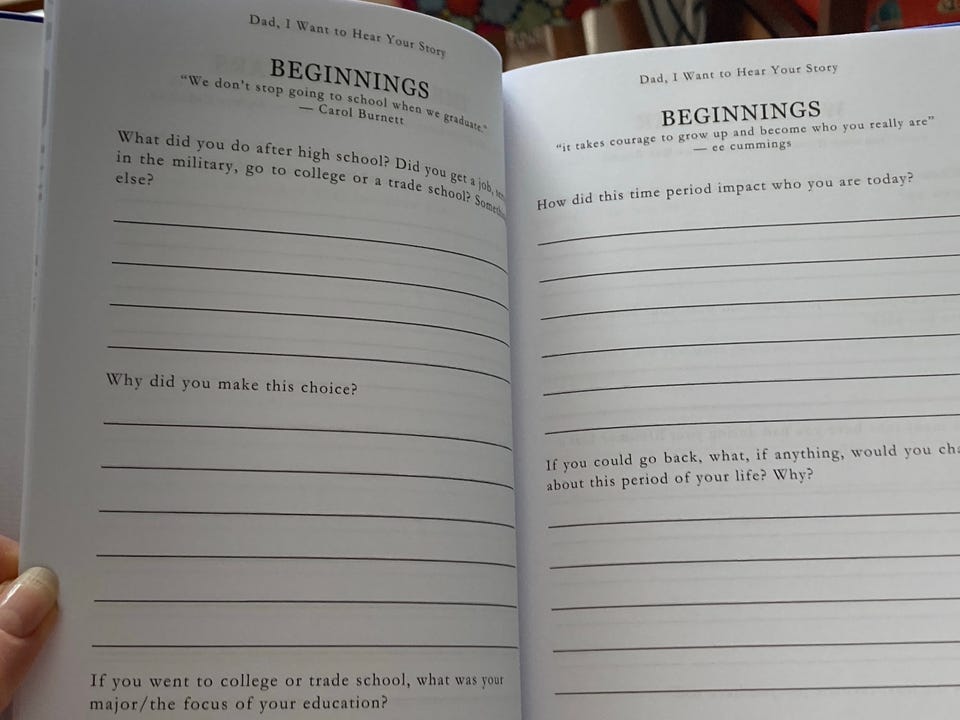 Dad, I Want to Hear Your Story
BEGINNINGS
"We don't stop going to school when we graduate."
— Carol Burnett
What did you do after high school? Did you get a job,
in the military, go to college or a trade school?
else?
Why did you make this choice?
If you went to college or trade school, what was your
major/the focus of your education?
Dad, I Want to Hear Your Story
BEGINNINGS
"it takes courage to grow up and become who you really are"
— ee cummings
How did this time period impact who you are today?
If you could go back, what, if anything, would you
about this period of your life? Why?